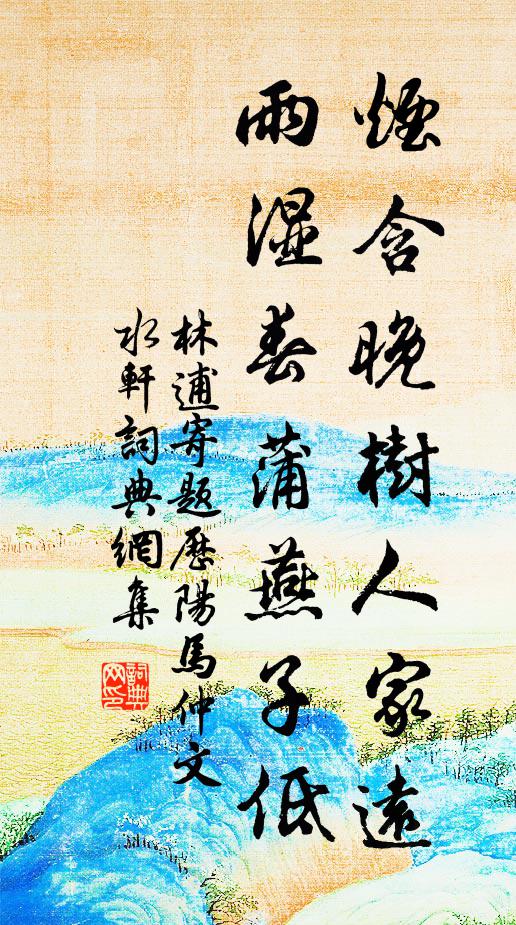 煙含晚樹人家遠
雨湿春蒲燕子低
林逋寄題歷陽馬仲文
水軒詞典網集
詞典网印